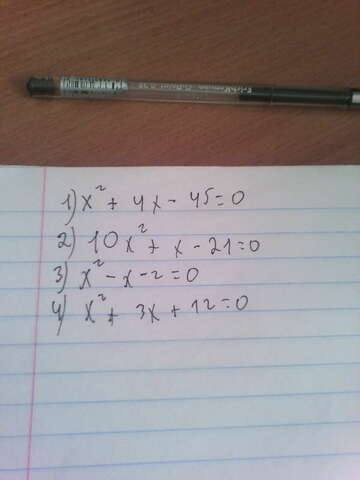 1) x² + 4x - 45 = 0
2) 10x² + x - 21 = 0
3) x² - x - 2 = 0
4) x² + 3x + 12 = 0